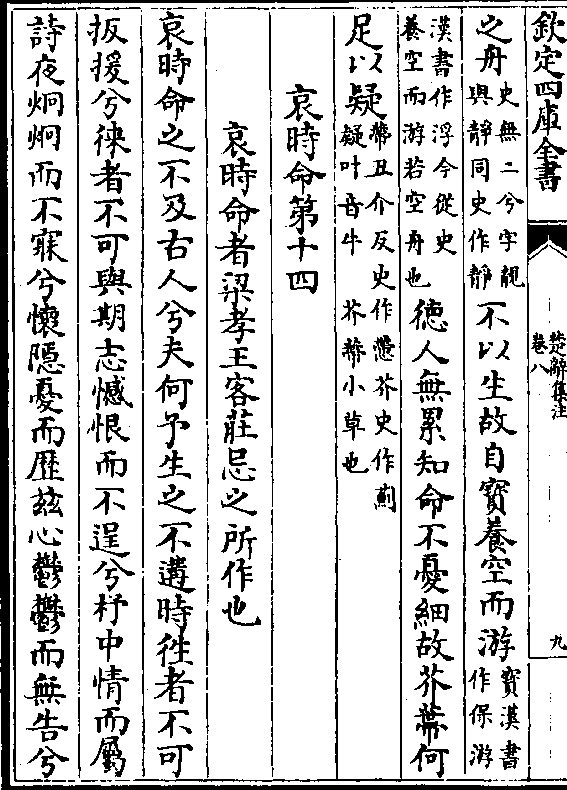 欽定四庫全書
楚辭集注
卷八
九
之舟史無二兮字靚與靜同史作靜不以生故自寶養空而游寶漢書作保游
漢書作浮今從史養空而游若空舟也德人無累知命不憂細故芥蔕何
足以疑蔕丑介反史作懘芥史作薊疑叶音牛 芥蔕小草也
哀時命第十四
哀時命者梁孝王客莊忌之所作也
哀時命之不及古人兮夫何予生之不遘時徃者不可
扳援兮徠者不可與期志憾恨而不逞兮杼中情而屬
詩夜炯炯而不寐兮懷隱憂而歴茲心鬱鬱而無告兮